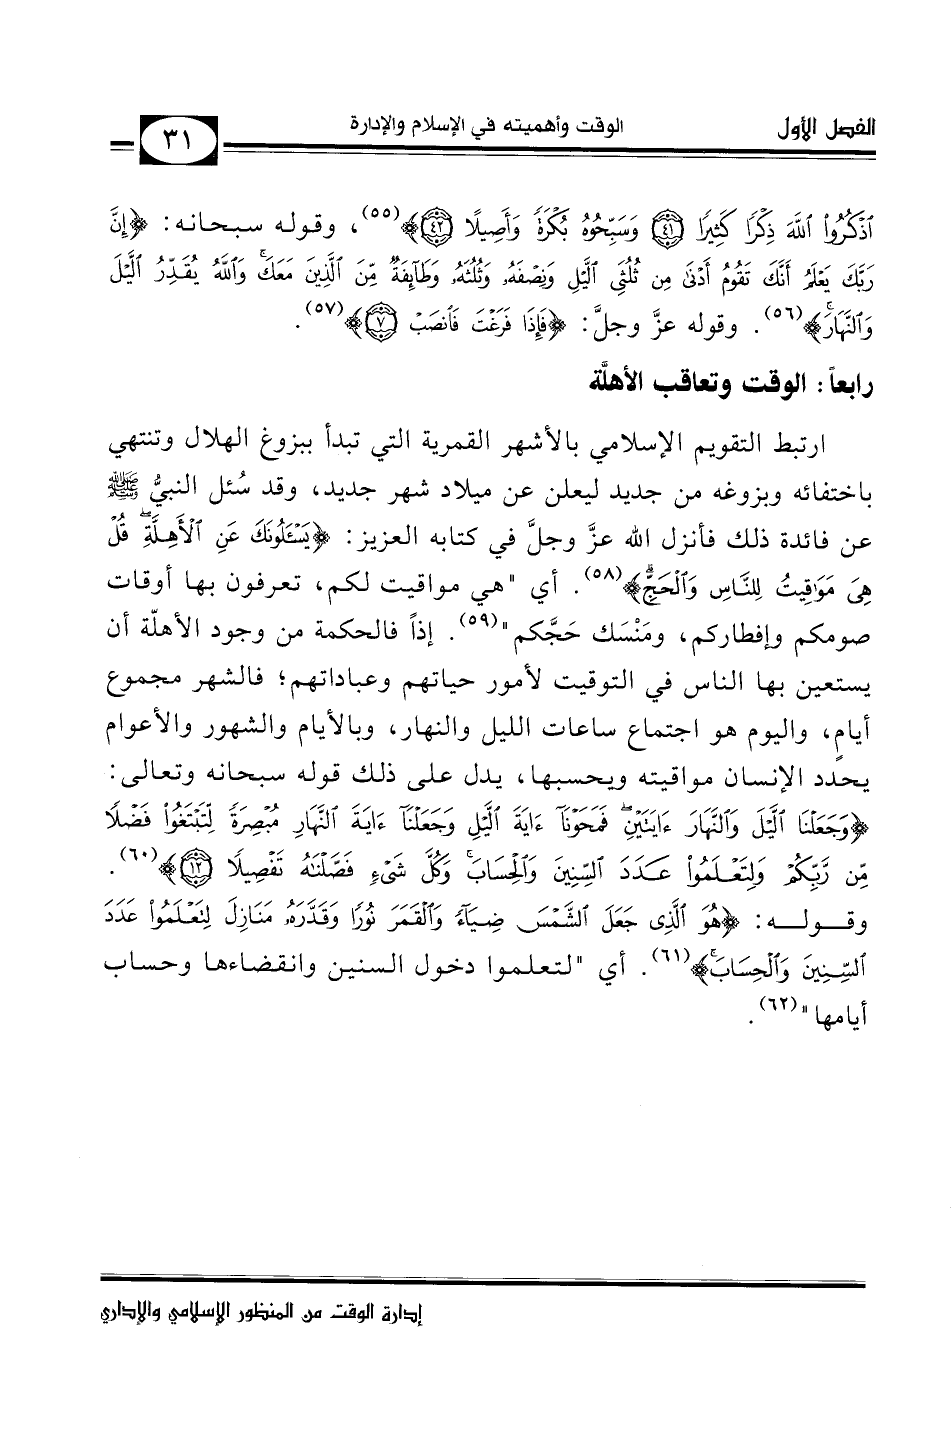 الفصل الأول
الوقت وأهميته في الإسلام والإدارة
٣١
ٱذۡكُرُواْ ٱللَّهَ ذِكۡرٗا كَثِيرٗا ٤١ وَسَبِّحُوهُ بُكۡرَةٗ وَأَصِيلًا ٤٢﴾(٥٥)، وقوله سبحانه: ﴿إِنَّ
رَبَّكَ يَعۡلَمُ أَنَّكَ تَقُومُ أَدۡنَىٰ مِن ثُلُثَيِ ٱلَّيۡلِ وَنِصۡفَهُۥ وَثُلُثَهُۥ وَطَآئِفَةٞ مِّنَ ٱلَّذِينَ مَعَكَۚ وَٱللَّهُ يُقَدِّرُ ٱلَّيۡلَ
وَٱلنَّهَارَۚ﴾(٥٦). وقوله عزَّ وجلَّ: ﴿فَإِذَا فَرَغۡتَ فَٱنصَبۡ ٧﴾(٥٧).
رابعاً: الوقت وتعاقب الأهلَّة
ارتبط التقويم الإسلامي بالأشهر القمرية التي تبدأ ببزوغ الهلال وتنتهي
باختفائه وبزوغه من جديد ليعلن عن ميلاد شهر جديد، وقد سُئل النبيُّ ﷺ
عن فائدة ذلك فأنزل الله عزَّ وجلَّ في كتابه العزيز: ﴿يَسۡـَٔلُونَكَ عَنِ ٱلۡأَهِلَّةِۖ قُلۡ
هِيَ مَوَٰقِيتُ لِلنَّاسِ وَٱلۡحَجِّۗ﴾(٥٨). أي "هي مواقيت لكم، تعرفون بها أوقات
صومكم وإفطاركم، ومَنْسَك حَجَّكم"(٥٩). إذاً فالحكمة من وجود الأهلّة أن
يستعين بها الناس في التوقيت لأمور حياتهم وعباداتهم؛ فالشهر مجموع
أيامٍ، واليوم هو اجتماع ساعات الليل والنهار، وبالأيام والشهور والأعوام
يحدد الإنسان مواقيته ويحسبها، يدل على ذلك قوله سبحانه وتعالى:
﴿وَجَعَلۡنَا ٱلَّيۡلَ وَٱلنَّهَارَ ءَايَتَيۡنِۖ فَمَحَوۡنَآ ءَايَةَ ٱلَّيۡلِ وَجَعَلۡنَآ ءَايَةَ ٱلنَّهَارِ مُبۡصِرَةٗ لِّتَبۡتَغُواْ فَضۡلٗا
مِّن رَّبِّكُمۡ وَلِتَعۡلَمُواْ عَدَدَ ٱلسِّنِينَ وَٱلۡحِسَابَۚ وَكُلَّ شَيۡءٖ فَصَّلۡنَٰهُ تَفۡصِيلٗا ١٢﴾(٦٠).
وقـولـه: ﴿هُوَ ٱلَّذِي جَعَلَ ٱلشَّمۡسَ ضِيَآءٗ وَٱلۡقَمَرَ نُورٗا وَقَدَّرَهُۥ مَنَازِلَ لِتَعۡلَمُواْ عَدَدَ
ٱلسِّنِينَ وَٱلۡحِسَابَۚ﴾(٦١). أي "لتعلموا دخول السنين وانقضاءها وحساب
أيامها"(٦٢).
إدارة الوقت من المنظور الإسلامي والإداري